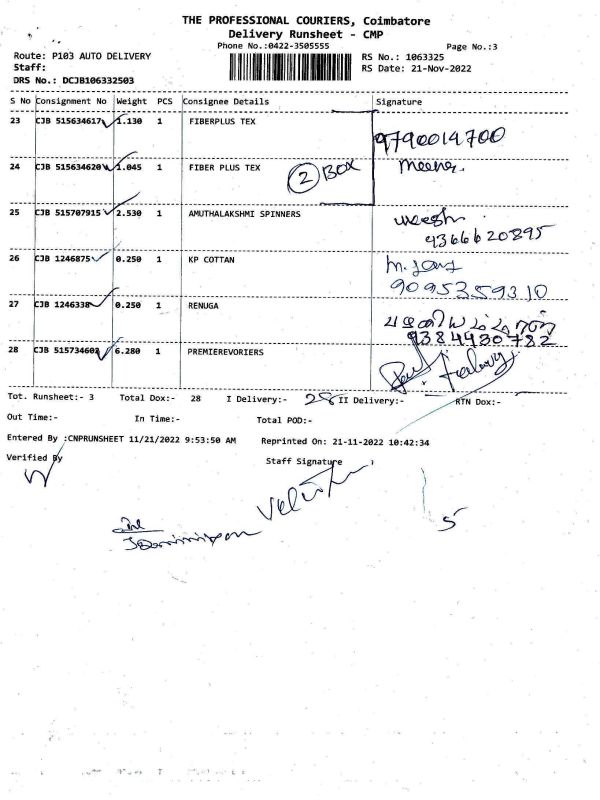 THE PROFESSIONAL COURIERS, Coimbatore
Delivery Runsheet - CMP
Phone No.:0422-3505555 Page No.:3
Route: P103 AUTO DELIVERY RS No.: 1063325
Staff: RS Date: 21-Nov-2022
DRS No.: DCJB106332503
S No Consignment No Weight PCS Consignee Details Signature
23 CJB 515634617 1.130 1 FIBERPLUS TEX
9790014700
24 CJB 515634620 1.045 1 FIBER PLUS TEX 2 BOX Meena.
25 CJB 515707915 2.530 1 AMUTHALAKSHMI SPINNERS
9366620895
26 CJB 1246875 0.250 1 KP COTTAN
9095259310
27 CJB 1246338 0.250 1 RENUGA
9384430782
28 CJB 515734602 6.280 1 PREMIEREVORIERS
Tot. Runsheet:- 3 Total Dox:- 28 I Delivery:- 28 II Delivery:- RTN Dox:-
Out Time:- In Time:- Total POD:-
Entered By :CNPRUNSHEET 11/21/2022 9:53:50 AM Reprinted On: 21-11-2022 10:42:34
Verified By Staff Signature
5